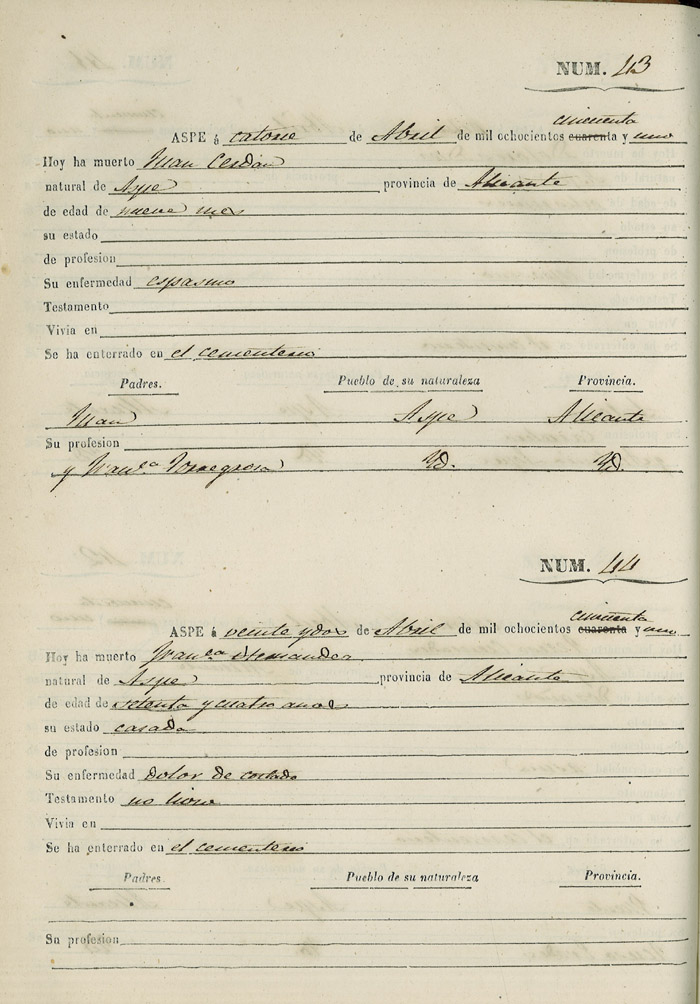 NUM. 43
cincuenta
ASPE á catorse de Abril de mil ochocientos cuarenta y uno
Hoy ha muerto Juan Cerdán
natural de Aspe provincia de Alicante
de edad de nueve mes
su estado
de profesion
Su enfermedad espasmo
Testamento
Vivia en
Se ha enterrado en el cementerio
Padres. Pueblo de su naturaleza Provincia.
Juan Aspe Alicante
Su profesion
y Fran.ca Torregrosa Yd. Yd.
NUM. 44
cincuenta
ASPE á veinte y dos de Abril de mil ochocientos cuarenta y uno
Hoy ha muerto Fran.ca Hernandez
natural de Aspe provincia de Alicante
de edad de setenta y cuatro anos
su estado casada
de profesion
Su enfermedad dolor de costado
Testamento no
Vivia en
Se ha enterrado en el cementerio
Padres. Pueblo de su naturaleza Provincia.
Su profesion